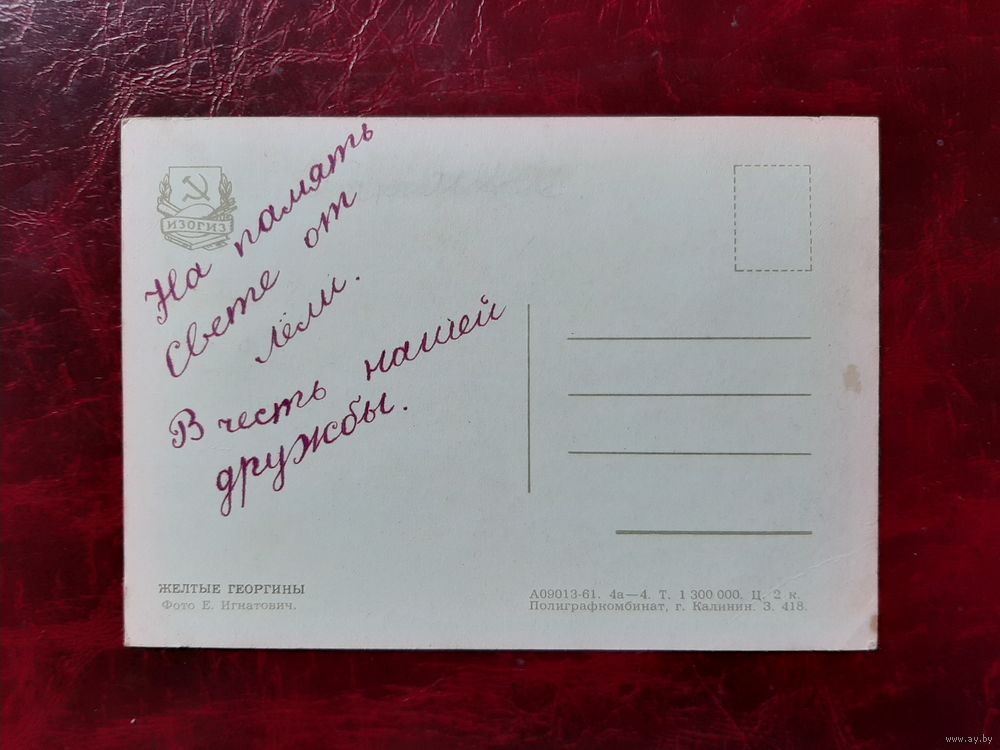 ИЗОГИЗ
На память
Свете от
Лёли.
В честь нашей
дружбы.
ЖЕЛТЫЕ ГЕОРГИНЫ
Фото Е. Игнатович.
А09013-61. 4а—4. Т. 1 300 000. Ц. 2 к.
Полиграфкомбинат, г. Калинин. З. 418.
www.ay.by